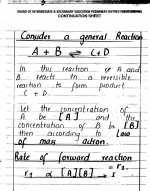 BOARD OF INTERMEDIATE & SECONDARY EDUCATION
CONTINUATION SHEET
Consider a general Reaction
A + B ⇌ C + D
In this reaction A and
B reacts in a reversible
reaction to form product
C + D.
Let the concentration of
A be [A] and the
concentration of B be [B]
then according to law
of mass action.
Rate of forward reaction
r₁ α [A][B] → I